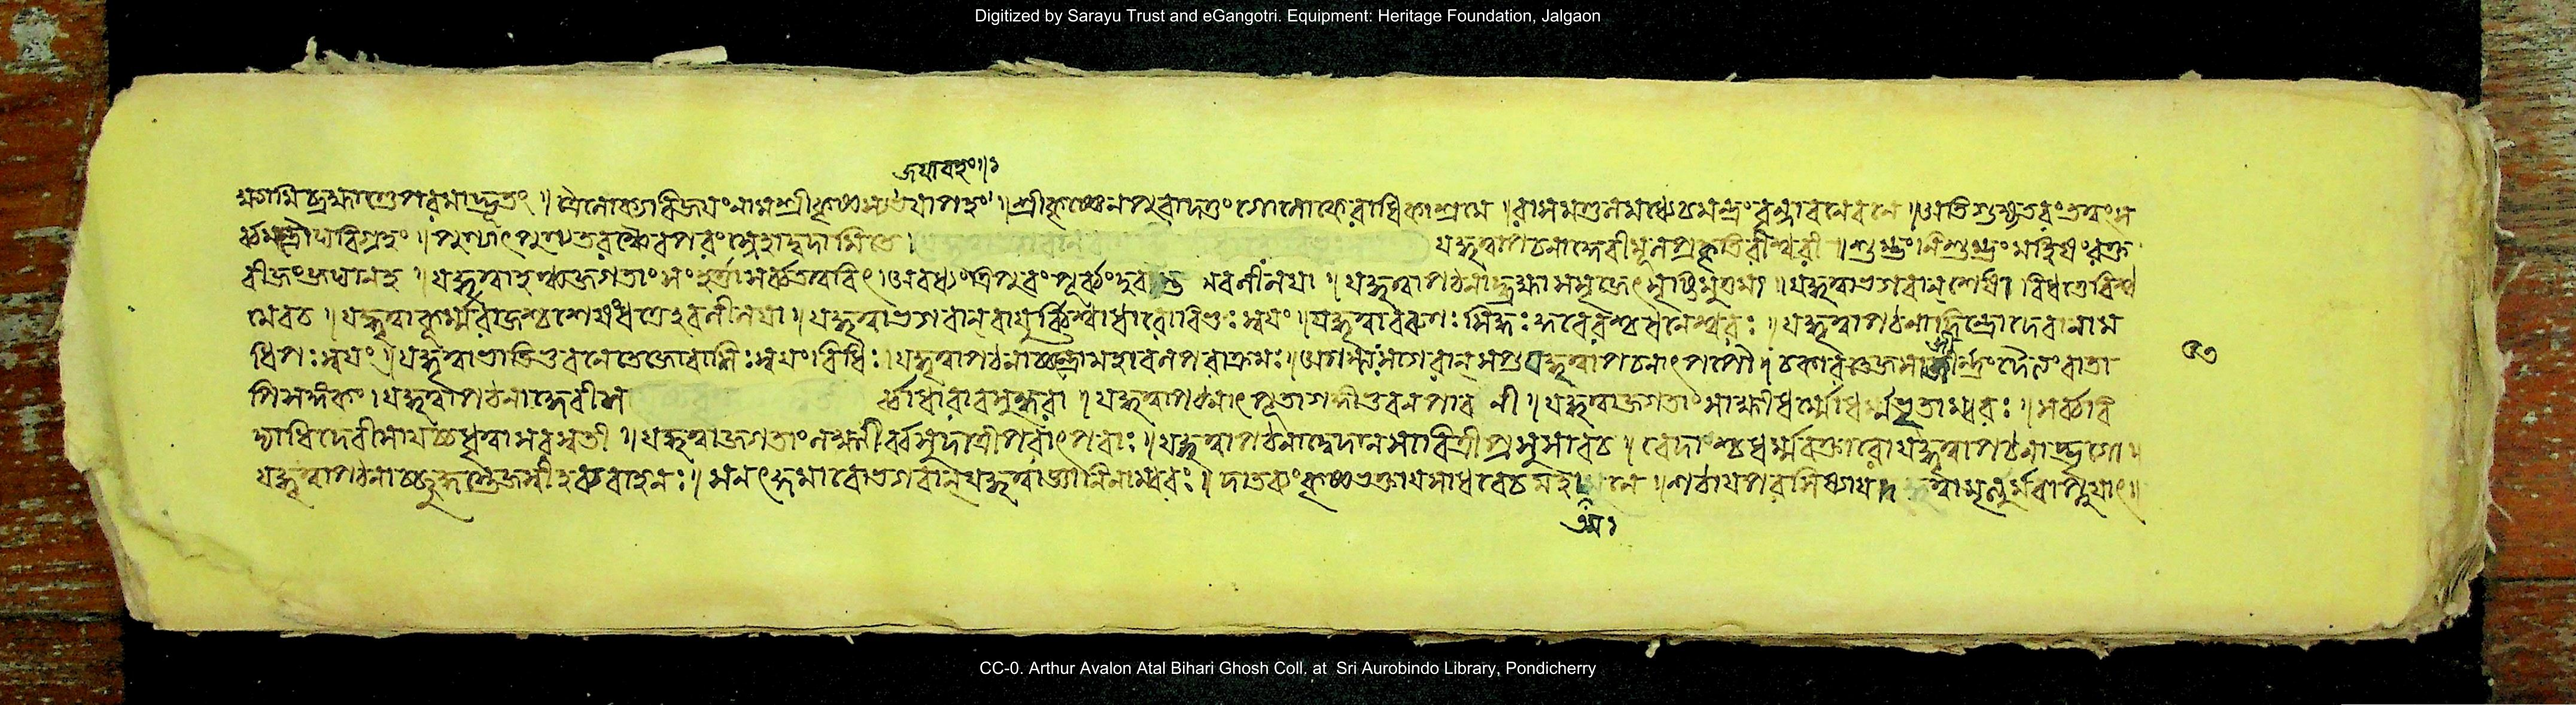 Digitized by Sarayu Trust and eGangotri. Equipment: Heritage Foundation, Jalgaon
জয়াবহং॥
ত্রৈলোক্যবিজয়ং নাম শ্রীকৃষ্ণস্য । শ্রীকৃষ্ণেন পুরা দত্তং গোলোকে রাধিকাশ্রমে । রাসমণ্ডলমধ্যে চ মহ্যং বৃন্দাবনে বনে । অতিগুহ্যতরং তত্ত্বং স
র্ব্বমন্ত্রৌঘবিগ্রহং । পুণ্যাৎ পুণ্যতরঞ্চৈব পরং স্নেহাদ্বদামি তে । যদ্ধৃত্বা পঠনাদ্দেবী মূলপ্রকৃতিরীশ্বরী । শুম্ভং নিশুম্ভং মহিষং রক্ত
বীজং জঘান হ । যদ্ধৃত্বাহঞ্চ জগতাং সংহর্ত্তা সর্ব্বতত্ত্ববিৎ । অবধ্যং ত্রিপুরং পূর্ব্বং লীলয়া । যদ্ধৃত্বা পঠনাদ্ব্রহ্মা সসৃজে সৃষ্টিমুত্তমাং । যদ্ধৃত্বা ভগবান্ শেষো বিধত্তে বিশ্ব
মেব চ । যদ্ধৃত্বা কূর্ম্মরাজশ্চ শেষং ধত্তে লীলয়া । যদ্ধৃত্বা ভগবান্ বায়ুর্ব্বিশ্বাধারো বিভুঃ স্বয়ং । যদ্ধৃত্বা বরুণঃ সিদ্ধঃ কুবেরশ্চ ধনেশ্বরঃ । যদ্ধৃত্বা পঠনাদিন্দ্রো দেবানাম
ধিপঃ স্বয়ং । যদ্ধৃত্বা ভাতি ভুবনে তেজোরাশিঃ স্বয়ং রবিঃ । যদ্ধৃত্বা পঠনাচ্চন্দ্রো মহাবলপরাক্রমঃ । অগস্ত্যঃ সাগরান্ সপ্ত যদ্ধৃত্বা পঠনাৎ পপৌ । চকার তেজসা জীর্ণং দৈত্যং বাতা
৫৩
পিসংজ্ঞকং । যদ্ধৃত্বা পঠনাদ্দেবী স র্ব্বাধারা বসুন্ধরা । যদ্ধৃত্বা পঠনাৎ পূতা গঙ্গা ভুবনপাবনী । যদ্ধৃত্বা জগতাং সাক্ষী ধর্ম্মো ধর্ম্মভৃতাম্বরঃ । সর্ব্ববি
দ্যাধিদেবী সা যচ্চ ধৃত্বা সরস্বতী । যদ্ধৃত্বা জগতাং লক্ষ্মীরন্নদাত্রী পরাৎপরা । যদ্ধৃত্বা পঠনাদ্বেদান্ সাবিত্রী প্রসুসাব চ । বেদাশ্চ ধর্ম্মবক্তারো যদ্ধৃত্বা পঠনাদ্ভৃগো ।
যদ্ধৃত্বা পঠনাচ্ছুদ্ধস্তেজস্বী হব্যবাহনঃ । সনৎকুমারো ভগবান্ যদ্ধৃত্বা জ্ঞানিনাম্বরঃ । দাতব্যং কৃষ্ণভক্তায় সাধবে চ মহাত্মনে । শঠায় পরশিষ্যায় দত্ত্বা মৃত্যুমবাপ্নুয়াৎ ॥
CC-0. Arthur Avalon Atal Bihari Ghosh Coll. at Sri Aurobindo Library, Pondicherry